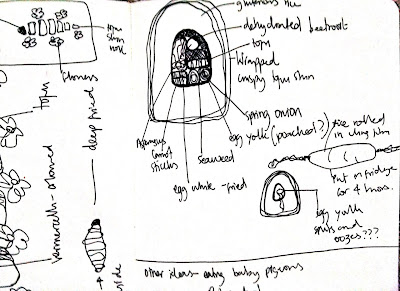 glutinous rice
dehydrated beetroot
tofu
Wrapped
crispy tofu skin
spring onion
egg yolk (poached?)
Seaweed
egg white - fried
Asparagus
Carrot
sticks
rice rolled
in cling film
put in fridge
for 4 hours.
egg yolk
spills and
oozes???
other ideas - eating baby pigeons
tofu
skin
flowers
tofu
deep fried
vermicelli - steamed